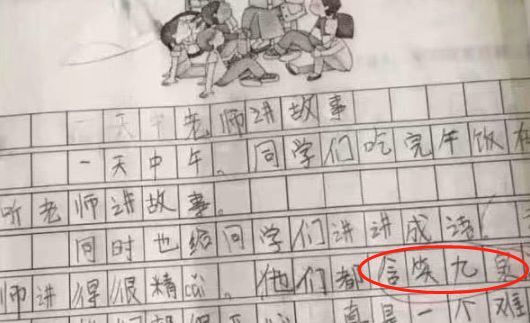 老师讲故事
一天中午。同学们吃完午饭
听老师讲故事。
同时也给同学们讲讲成语
师讲得很精cǎi。他们都含笑九泉
真是一个难